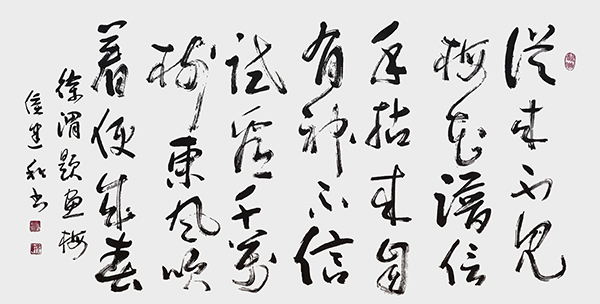 從來不見
梅花譜信
手拈來自
有神不信
試看千萬
樹東風吹
着便成春
徐渭題畫梅
書